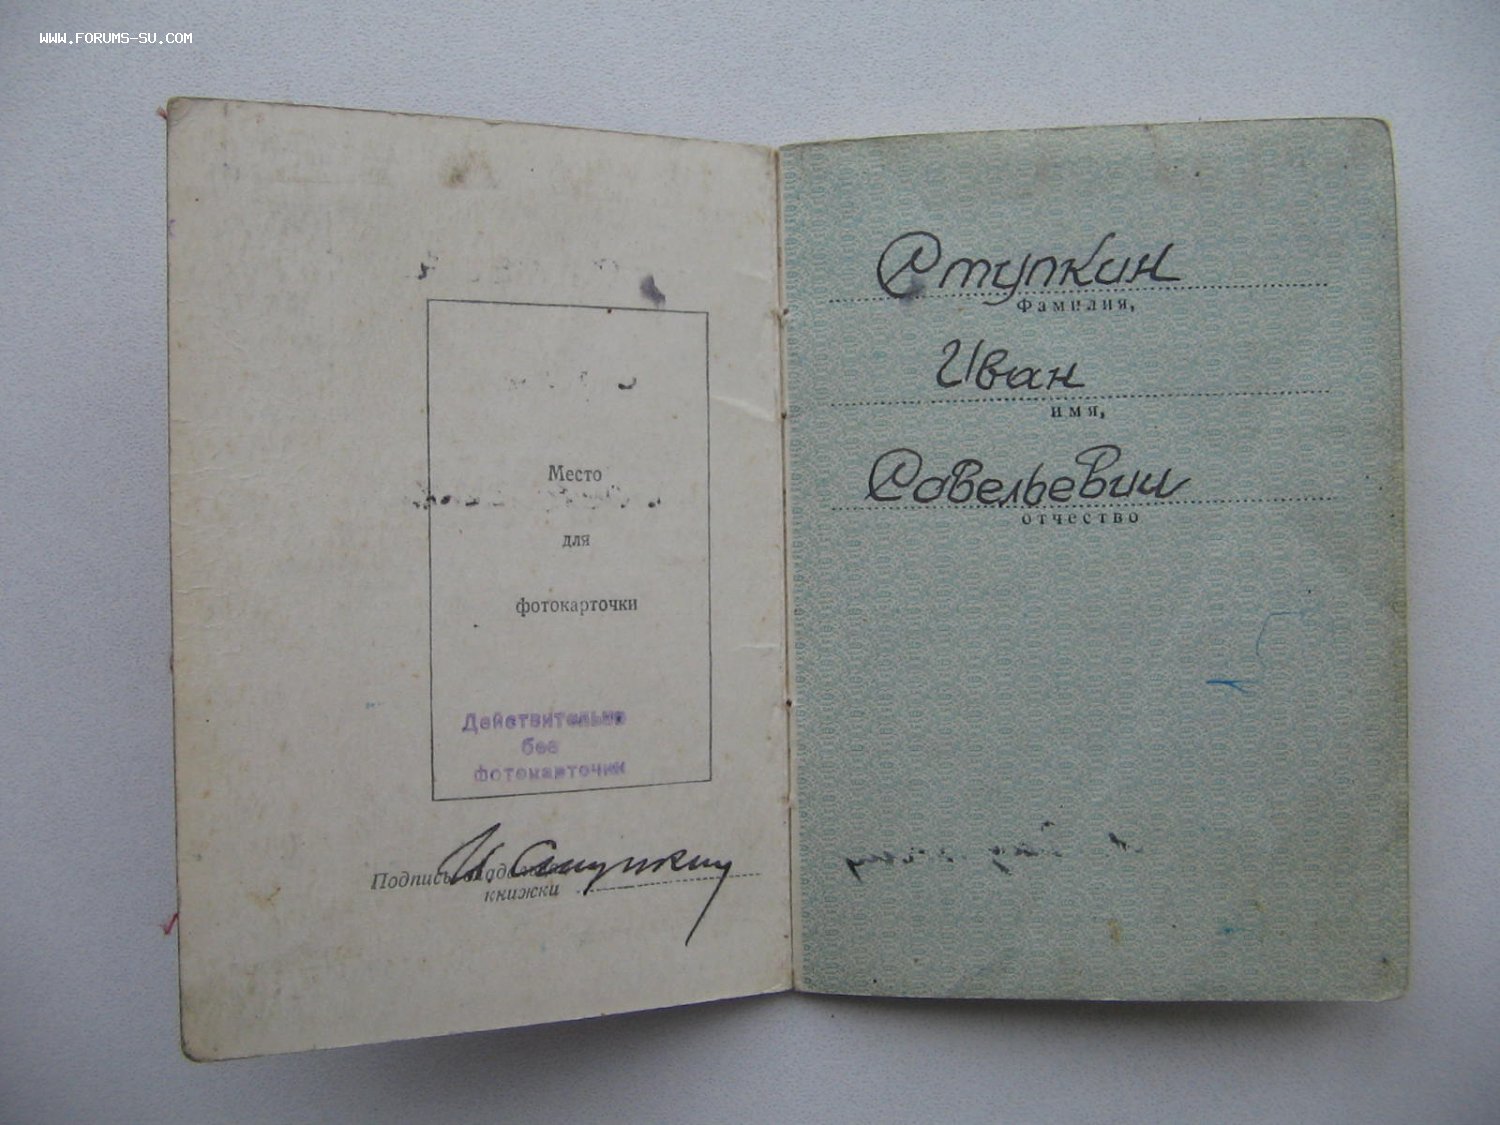 WWW.FORUMS-SU.COM
Место
для
фотокарточки
Действительно
без
фотокарточки
И. Ступкин
Подпись владельца
книжки
Ступкин
Фамилия,
Иван
имя,
Савельевич
отчество